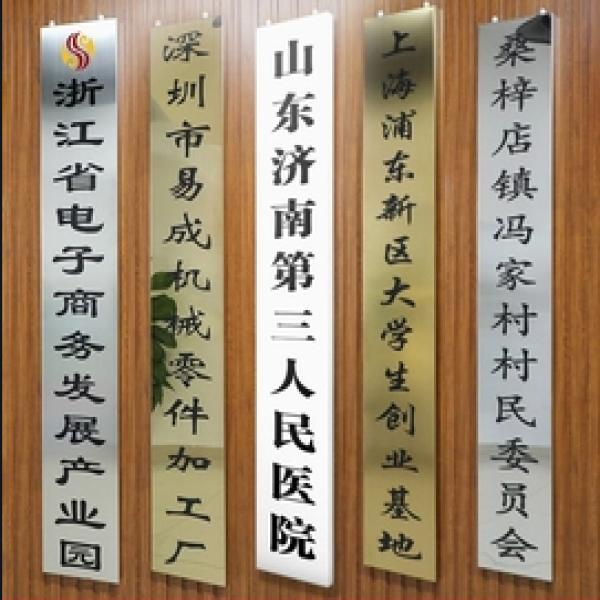 浙江省电子商务发展产业园
深圳市易成机械零件加工厂
山东济南第三人民医院
上海浦东新区大学生创业基地
桑梓店镇冯家村村民委员会